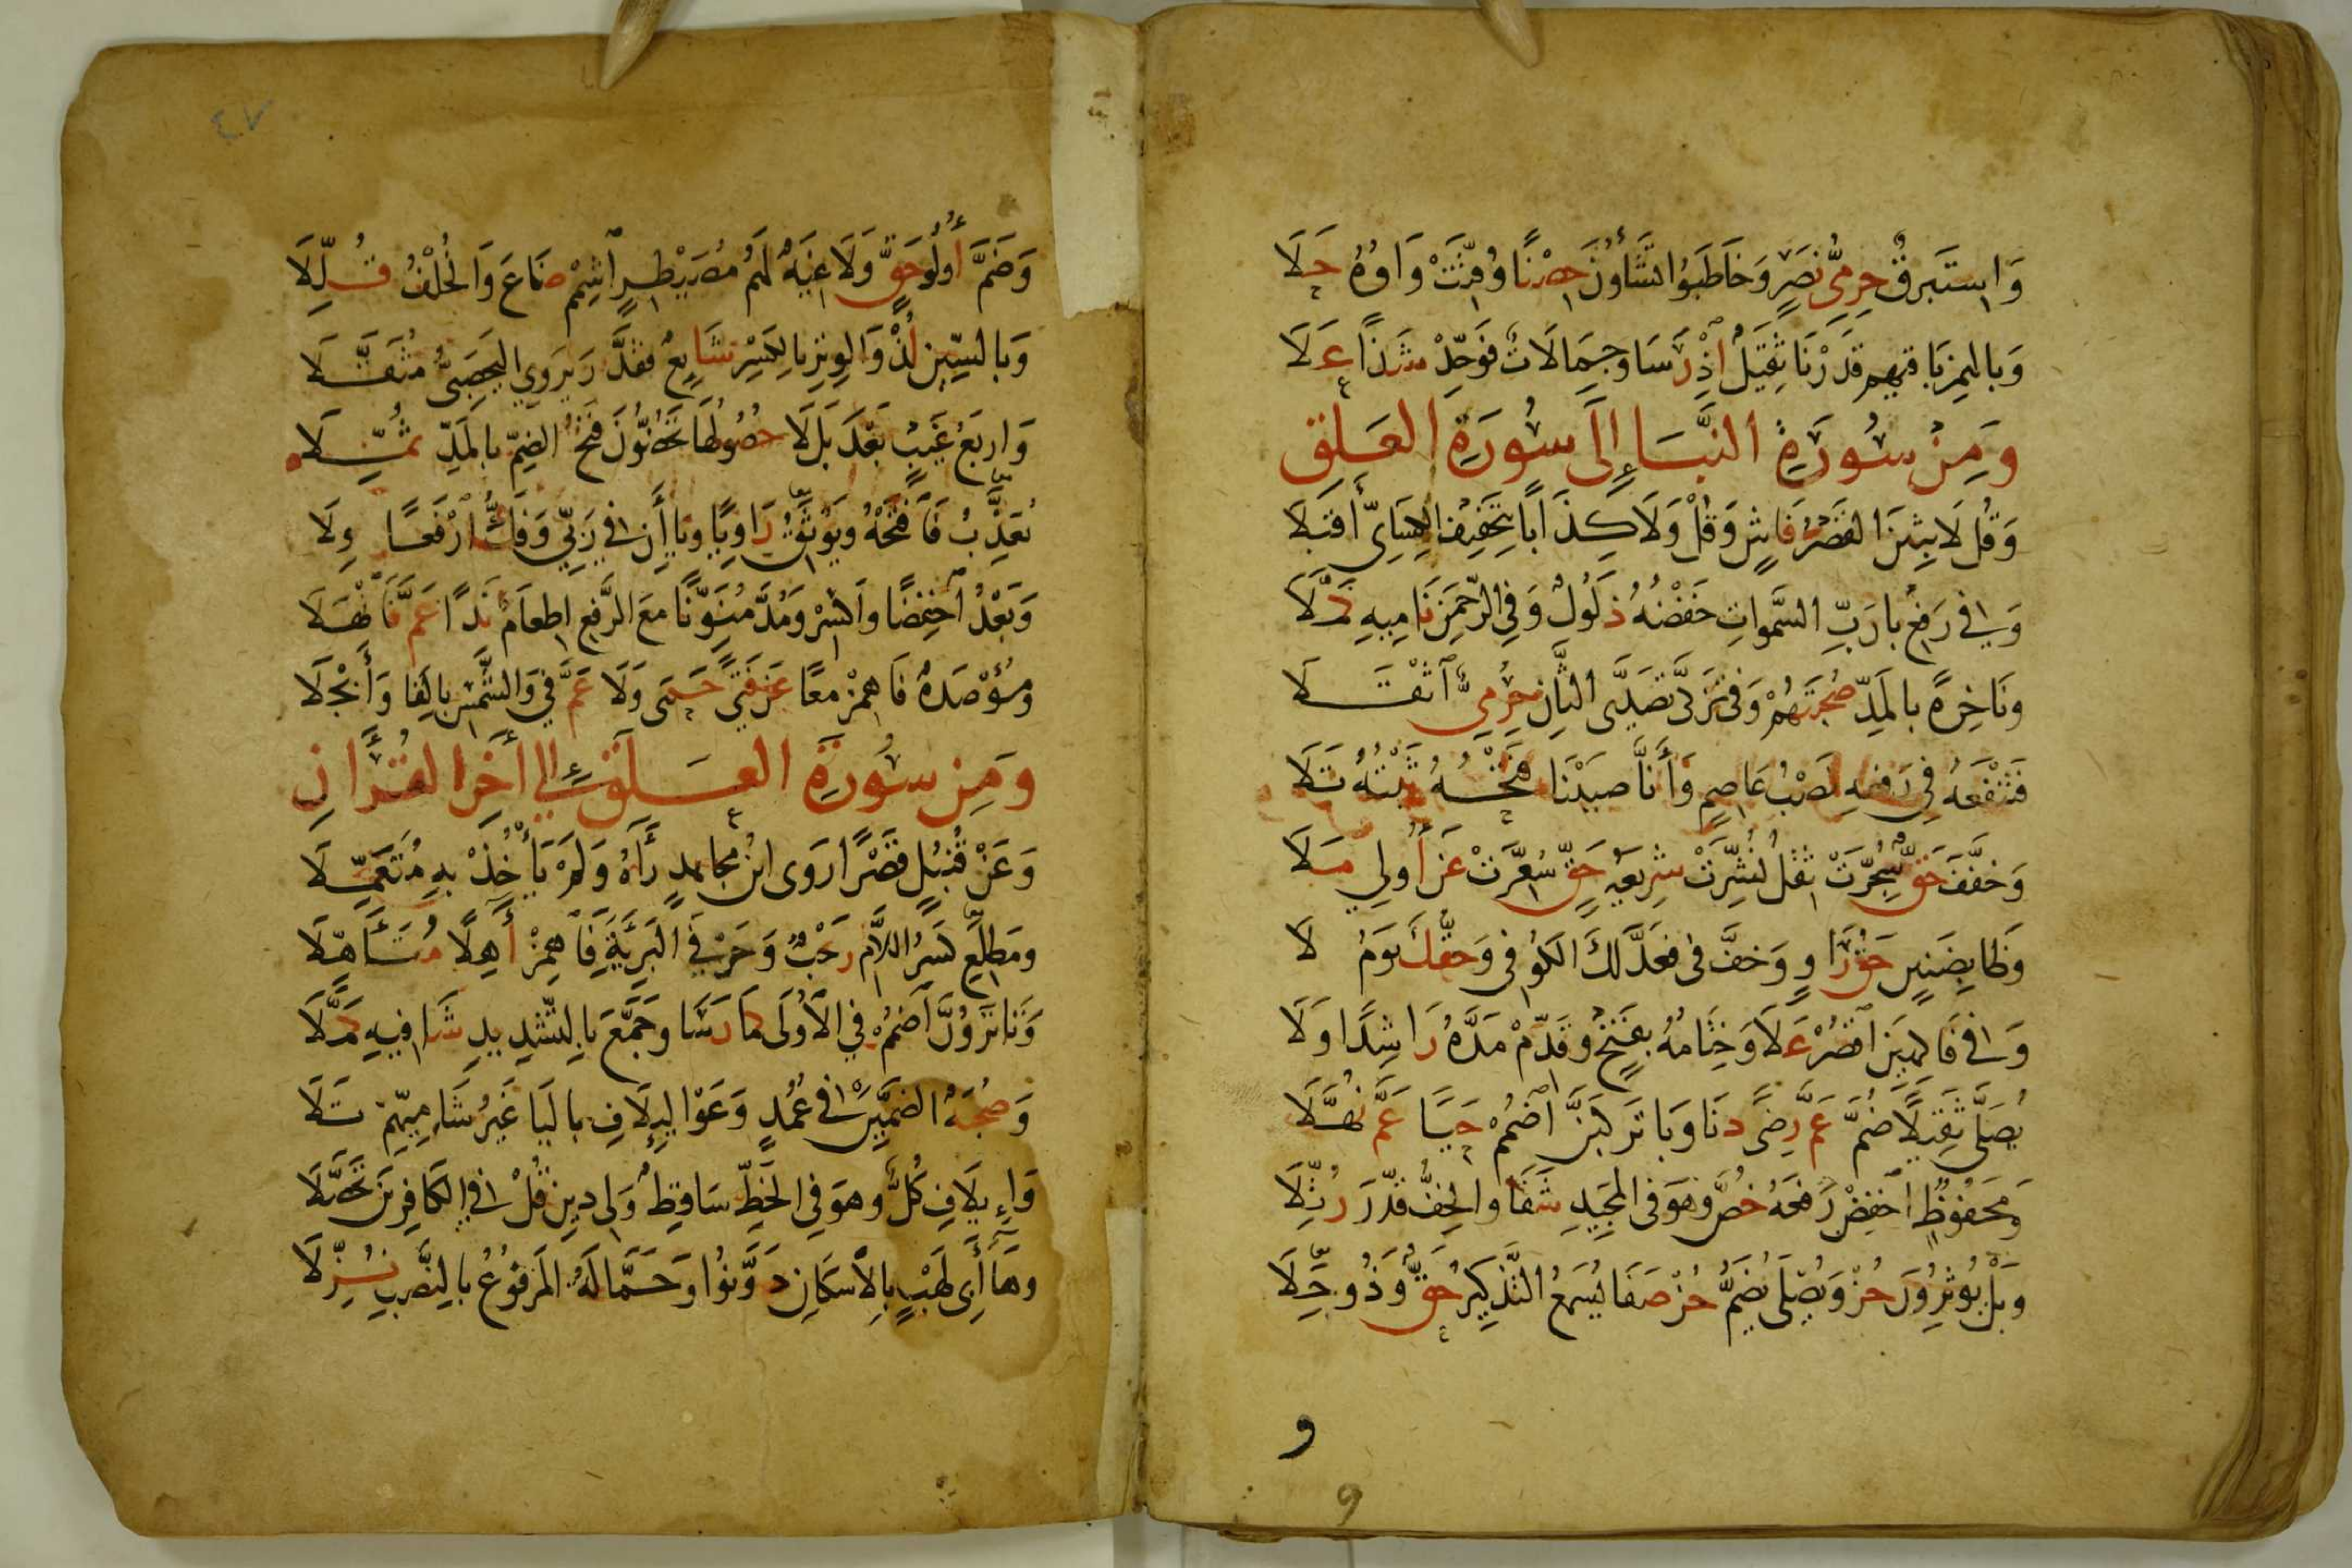 وَاِسْتَبرقٌ حِرمِىُّ نَصْرٍ وَخَاطَبُوا تَشَاؤُنَ حِصْنًا وُقِّتَتْ وَاوُهُ حَلَا
وَبِالهَمْزِ بَاقِيهِم قَدَرْنَا ثَقِيلٌ اِذْ رَسَا وَجِمَالَاتٌ فَوَحِّدْ شَذًا عَلَا
وَمِنْ سُورَةِ النَّبَإِ إِلَى سُورَةِ العَلَق
وَقُل لَابِثِينَ القَصْرُ فَاشٍ وَقُلْ وَلَا كِذَابًا بِتَخْفِيفِ الكِسَاىِّ أَقبَلَا
وَفِي رَفْعِ بَا رَبُّ السَّمٰواتِ خَفْضُهُ ذَلُولٌ وَفِي الرَّحْمٰنِ نَامِيهِ ذَمَّلَا
وَنَاخِرَةً بِالمَدِّ صُحْبَتُهُمْ وَفِى تَزَكَّى تَصَدَّى الثَّانِ حِرْمِىٌّ اَثْقَلَا
فَتَنْفَعُهُ فِي رَفْعِهِ نَصْبُ عَاصِمٍ وَأَنَّا صَبَبْنَا فَتْحُهُ ثَبْتُهُ تَلَا
وَخَفَّفَ حَقٌّ سُجِّرَتْ ثِقْلُ نُشِّرَتْ شَرِيعَةُ حَقٍّ سُعِّرَتْ عَن أُولِي مَلَا
وَظَا بِضَنِينٍ حَقُّ رَاوٍ وَخَفَّ فِى فَعَدَّلَكَ الكُوفِى وَحَقُّكَ يَومُ لَا
وَفِى فَاكِهِينَ اقْصُرْ عَلَا وَخِتَامُهُ بِفَتْحٍ وَقَدِّمْ مَدَّهُ رَاشِدًا وَلَا
يُصَلَّى ثَقِيلًا ضُمَّ عَمَّ رِضًى دَنَا وَبَا تَركَبَنَّ اضْمُمْ حَيًا عَمَّ نُهَّلَا
وَمَحْفُوظٌ اخْفِضْ رَفْعَهُ خُصَّ وَهوَ فِى المَجِيدِ شَفَا وَالخِفُّ قَدَّرَ رُتِّلَا
وَبَلْ يُوثِرُونَ حُزْ وَتُصْلَى يُضَمُّ حُزْ صَفَا يُسمَعُ التَّذْكِيرُ حَقٌّ وَذُو جِلَا
و
وَضَمَّ أُولُو حَقٍّ وَلَاغِيَةٌ لَهُمْ مُصَيْطِرٍ اَشْمِمْ ضَاعَ وَالخُلْفُ قُلِّلَا
وَبِالسِّينِ لُذْ وَالوِتْرِ بِالكَسْرِ شَايِعٌ فَقَدَّرَ يَروِي اليَحصِبِىُّ مُثَقَّلَا
وَاربَعُ غَيبٍ بَعْدَ بَل لَا حُصُولُهَا تَحُضُّونَ فَتْحُ الضَّمِّ بِالمَدِّ ثُمِّلَا
يُعَذِّبُ فَافْتَحْهُ وَيُوثِقُ رَاوِيًا وَيَاأَنِ فِي رَبِّي وَفَكُّ ارْفَعًا وِلَا
وَبَعْدُ اَخْفِضًا وَاكْسِرْ وَمُدَّ مُنَوِّنًا مَعَ الرَّفعِ اِطعَامٌ نَدًا عَمَّ فَانْهَلَا
وَمُؤْصَدَةٌ فَاهمِزْ مَعًا عَن فَتًى حَمًى وَلَا عَمَّ فِي وَالشَّمْسِ بِالفَا وَأَنْجَلَا
وَمِن سُورَةِ العَلَق إِلَى أٰخَرِ القُرْاٰنِ
وَعَنْ قُنبُلٍ قَصْرًا رَوَى ابنُ مُجَاهدٍ رَأَهُ وَلَمْ يَأْخُذْ بِهِ مُتَعَمِّلَا
وَمَطلَعِ كَسْرُ اللَّامِ رَحْبٌ وَحَرْفَي البَرِيَّةِ فَاهمِزْ أٰهِلًا مُتَأَهِّلَا
وَتَا تَرَوُنَّ اضْمُمْ فِي الأُولَى كَمَا رَسَا وَجَمَّعَ بِالتَّشدِيدِ شَافِيهِ كَمَّلَا
وَصُحْبَةٌ الضَّمَّينِ فِى عُمُدٍ وَعَوْا لِإِيلَافِ بِاليَا غَيْرُ شَامِيِّهِمْ تَلَا
وَإِيلَافِ كُلٌّ وَهوَ فِي الخَطِّ سَاقِطٌ وَلِى دِينِ قُلْ فِي الكَافِرِينَ تَحَصَّلَا
وَهَا أَبِي لَهْبٍ بِالإِسْكَانِ دَوَّنُوا وَحَمَّالَةُ المَرفُوعُ بِالنَّصْبِ نُزِّلَا
٤٧